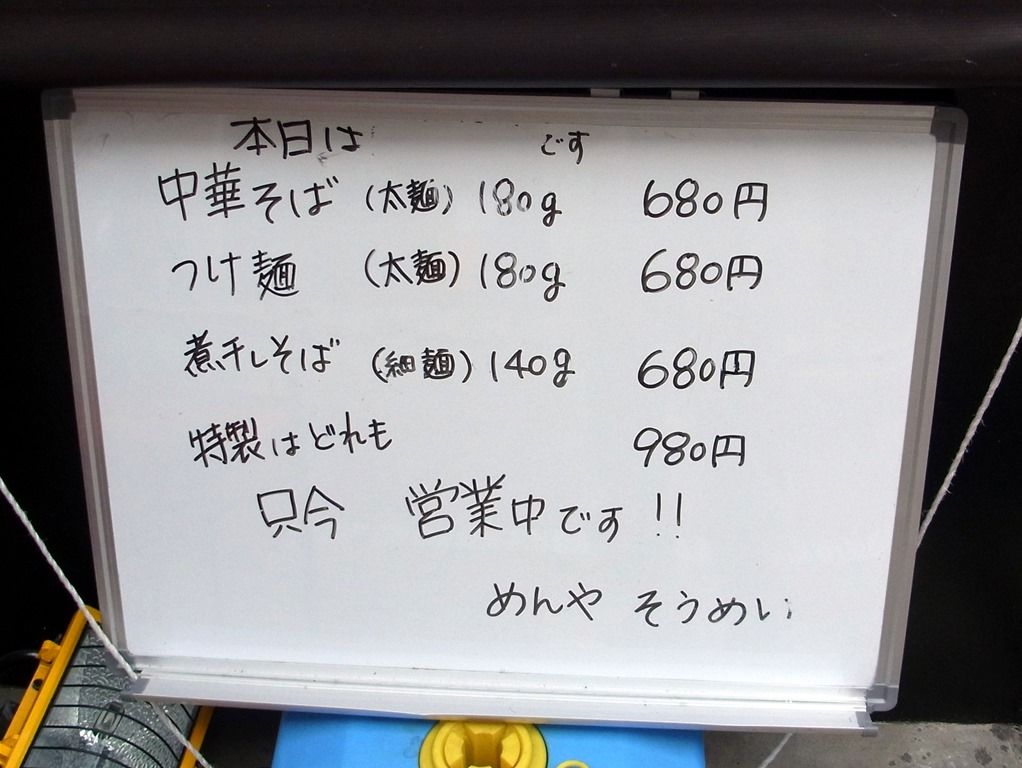 本日は です
中華そば (太麺) 180g 680円
つけ麺 (太麺) 180g 680円
煮干しそば (細麺) 140g 680円
特製はどれも 980円
只今 営業中です !!
めんや そうめい